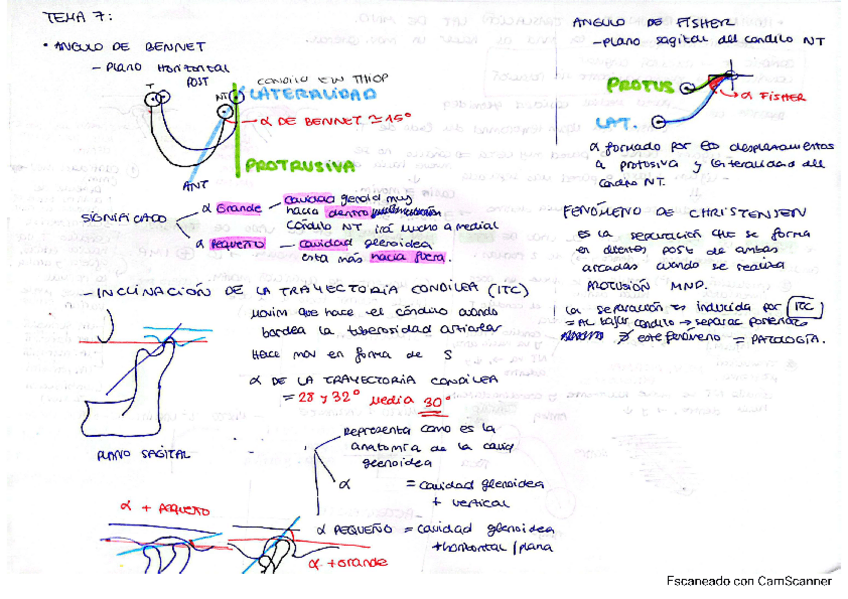 TEMA 7:
• ANGULO DE BENNET
- Plano Horizontal
POST
T
NT
CONDILO EN THOP
LATERALIDAD
α DE BENNET ≃ 15°
PROTRUSIVA
ANT
SIGNIFICADO
α Grande - cavidad glenoid muy
hacia dentro
Cóndilo NT irá mucho a medial
α Pequeño - cavidad glenoidea
esta más hacia fuera.
- INCLINACIÓN DE LA TRAYECTORIA CONDILEA (ITC)
Movim que hace el cóndilo cuando
bordea la tuberosidad articular
Hace mov en forma de S
α DE LA TRAYECTORIA CONDILEA
= 28 y 32° Media 30°
PLANO SAGITAL
Representa como es la
anatomía de la cavid
glenoidea
α = cavidad glenoidea
+ vertical
α PEQUEÑO = cavidad glenoidea
+horizontal/plana
α + PEQUEÑO
α +Grande
ANGULO DE FISHER
- plano sagital del condilo NT
PROTUS
α FISHER
LAT.
α formado por los desplazamientos
a protusiva y lateralidad del
condilo NT.
FENÓMENO DE CHRISTENSEN
ES la separación que se forma
en dientes post de ambas
arcadas cuando se realiza
PROTUSIÓN MND.
La separación es inducida por ITC
= AL bajar condilo → separac posterior
este fenómeno = PATOLOGÍA.
Escaneado con CamScanner